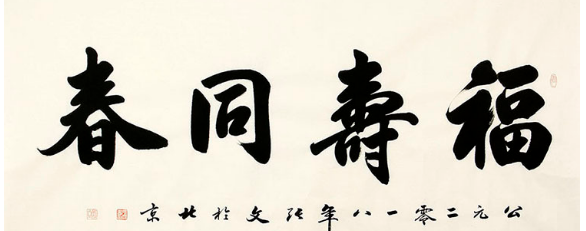 福壽同春
公元二零一八年張文於北京